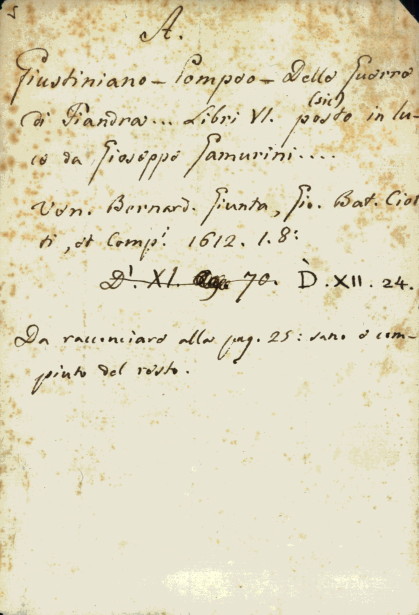 A.
Giustiniano - Pompeo - Delle Guerre
di Fiandra... Libri VI. (sic) posto in lu-
ce da Gioseppe Gamurini....
Ven. Bernard. Giunta, Gio. Bat. Ciot
ti, et Comp. 1612. 1. 8:
D' XI. 70. D̀.XII.24.
Da racconciare alla pag. 25: sano e com-
piuto del resto.